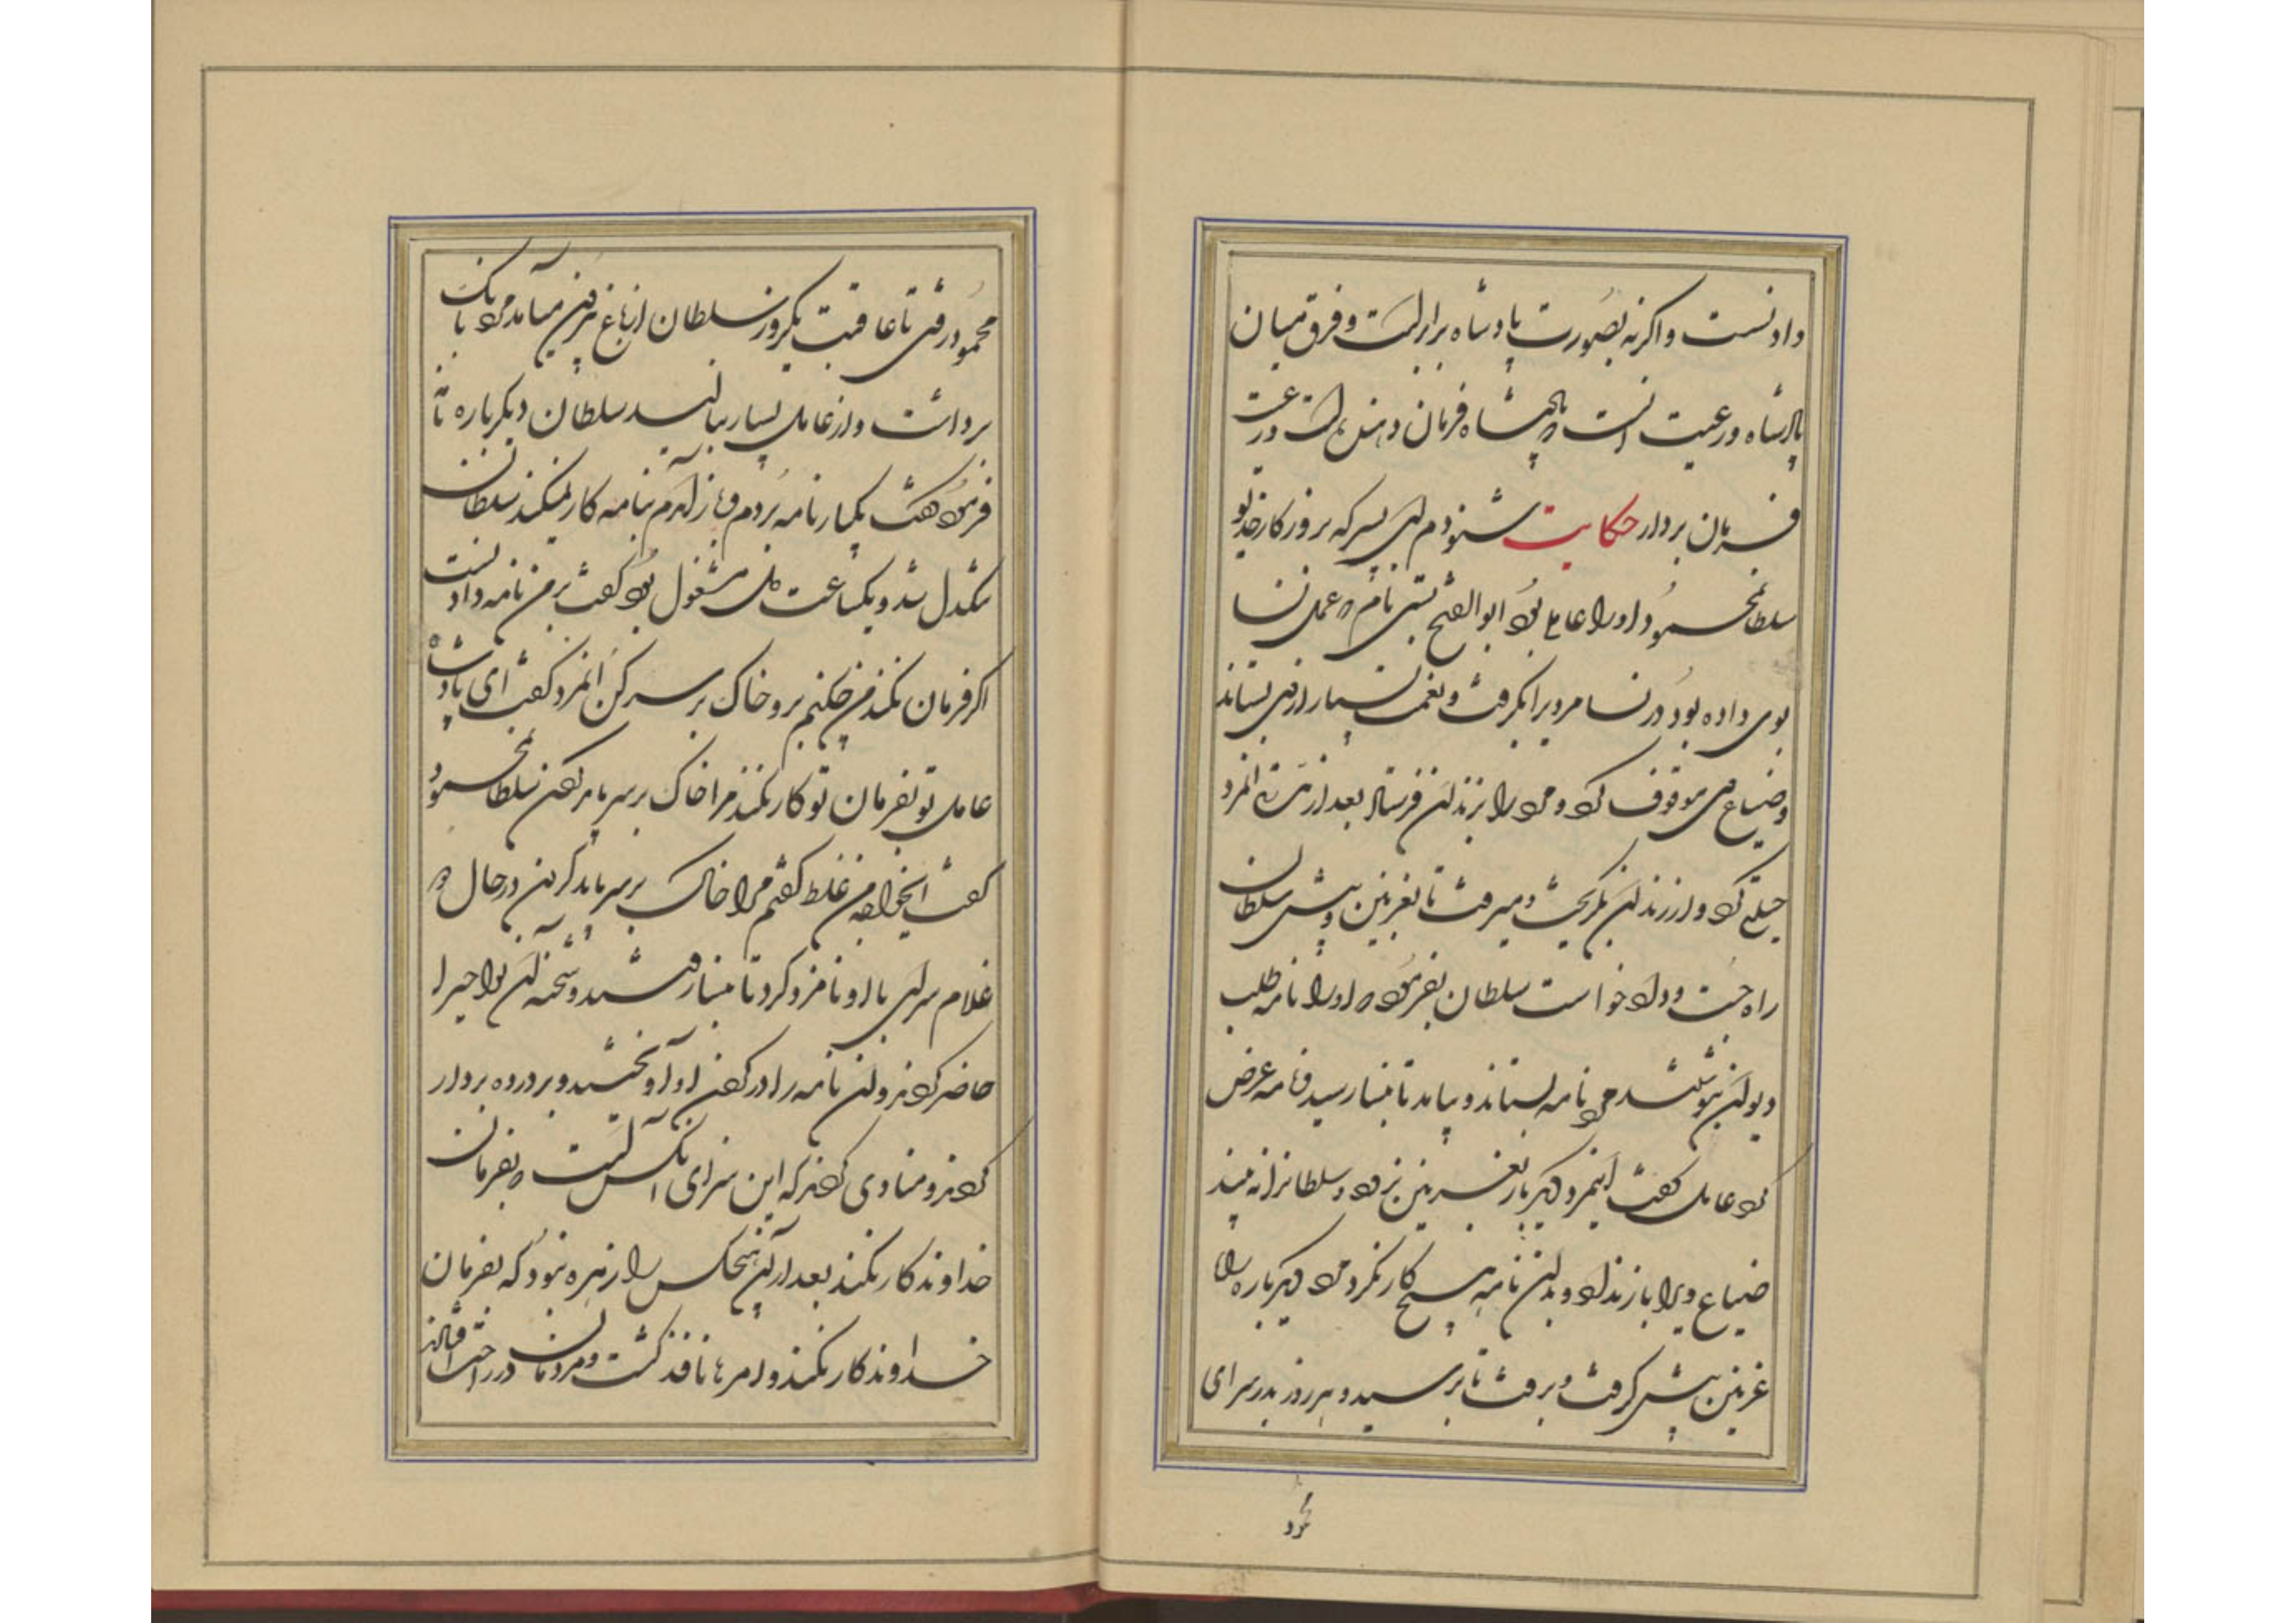 دادنست و اگر نه بصورت پادشاه برابرست و فرق میان
پادشاه و رعیت آنست که پادشاه فرمان دهنده است و رعیت
فرمان بردار حکایت شنودم ای پسر که بروزگار جد تو
سلطان محمود او را عاملی بود ابوالفتح بستی نام که عمل نسا
بوی داده بود در نسا مرد یرا بگرفت و نعمت بسیار از وی بستاند
و ضیاع وی موقوف کرد و مرد را بزندان فرستاد بعد از مدتی آنمرد
حیلتی کرد و از زندان بگریخت و میرفت تا بغزنین و پیش سلطان
راه جست و داد خواست سلطان بفرمود که او را نامه طلب
دیوان بنوشتند مرد نامه بستاند و بیامد تا بنسا رسید و نامه عرض
کرد عامل گفت اینمرد دیگر بار بغزنین نرود و سلطانرا نه بیند
ضیاع ویرا باز نداد و بدان نامه هیچ کار نکرد مرد دیگر باره راه
غزنین پیش گرفت و برفت تا برسید و هر روز بدر سرای
محمود
محمود رفتی تا عاقبت یکروز سلطان از باغ غزنین میآمد مرد بانک
برداشت و از عامل بسیار بنالید سلطان دیگر باره نامه
فرمود گفت یکبار نامه بردم و باز آمدم بنامه کار نمیکند سلطان
تنگدل شد و یکساعت دل مشغول بود گفت بر من نامه دادنست
اگر فرمان نکنند من چکنم برو خاک بر سر کن آنمرد گفت ای پادشاه
عامل تو بفرمان تو کار نکند مرا خاک بر سر باید کردن سلطان محمود
گفت ایخواجه من غلط گفتم مرا خاک بر سر باید کردن در حال دو
غلام سرای با او نامزد کرد تا بنسا رفتند و شحنه آن نواحیرا
حاضر کردند و آن نامه را در گردن او آویختند و بر در ده بردار
کردند و منادی کردند که این سزای آنکس است که بفرمان
خداوند کار نکند بعد از آن هیچکس را زهره نبود که بفرمان
خداوند کار نکند و امرها نافذ گشت و مردمان در راحت افتادند